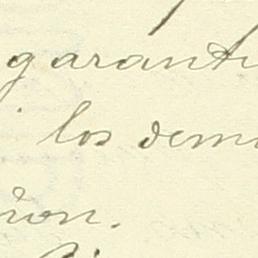 garanti
los dem
ñon.